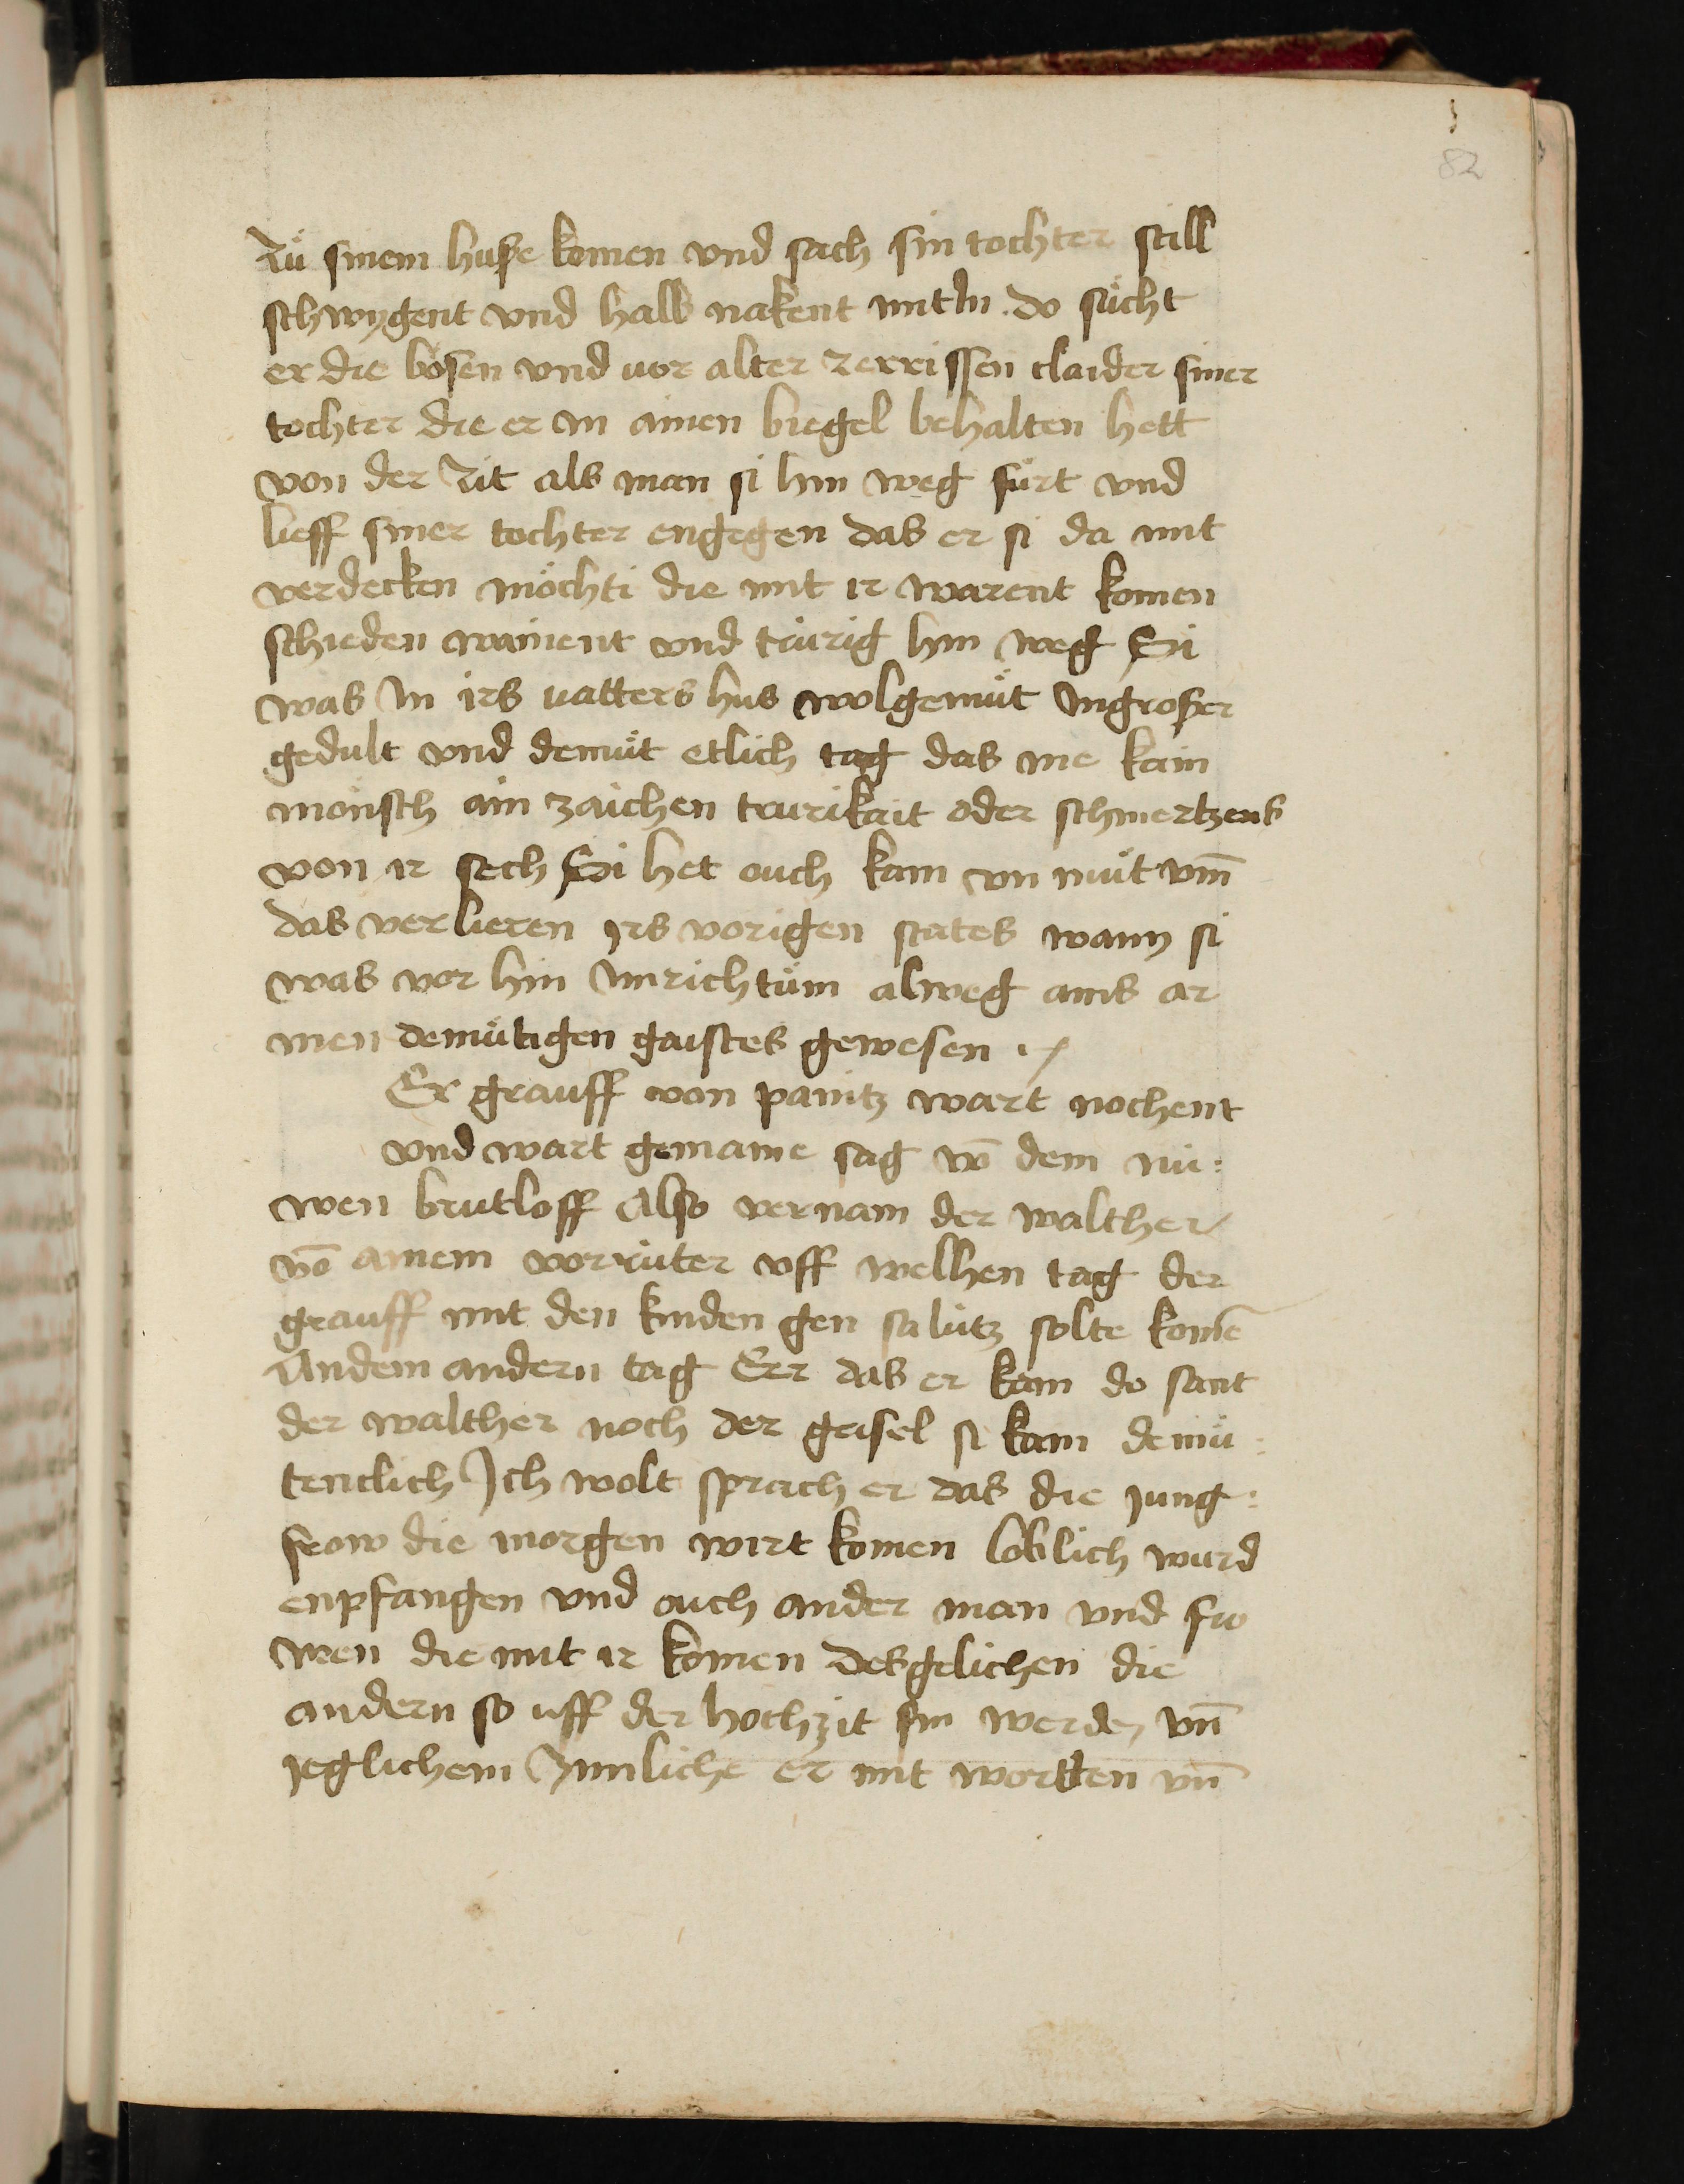 82
Zuͦ sinem huse komen vnd sach sin tochter still
schwygent vnd halb nakent mit In do suͦcht
er die boͤsen vnd vor alter zerrissen claider siner
tochter die er in ainen biegel behalten hett
von der Zit als man si hin weg fuͤrt vnd
lieff siner tochter engegen das er si da mit
verdecken moͤchti die mit ir warent komen
schieden wainent vnd trurig hin weg Si
was In irs vatters hus wolgemuͤt In grosser
gedult vnd demuͤt etlich tag das nie kain
moͤnsch ain zaichen trurikait oder schmertzens
von ir sech Si het ouch kain vn muͦt vm̄
das verlieren irs vorigen states wann si
was vor hin In richtuͦm alweg ains ar
men demuͤtigen gaistes gewesen
Er grauff von panitz wart nochent
vnd wart gemaine sag vō dem nu:
wen brutloff Also vernam der walther
vō ainem vorruter vff welhen tag der
grauff mit den kinden gen salutz solte komē
An dem andern tag Err das er kam do sant
der walther noch der grisel si kam demuͤ:
tenclich Ich wolt sprach er das die jung:
frow die morgen wirt komen loblich wurd
enpfangen vnd ouch ander man vnd fro
wen die mit ir komen desgelichen die
andern so uff der hochzit sin werden vn̄
jeglichem Zimliche er mit wortten vn̄